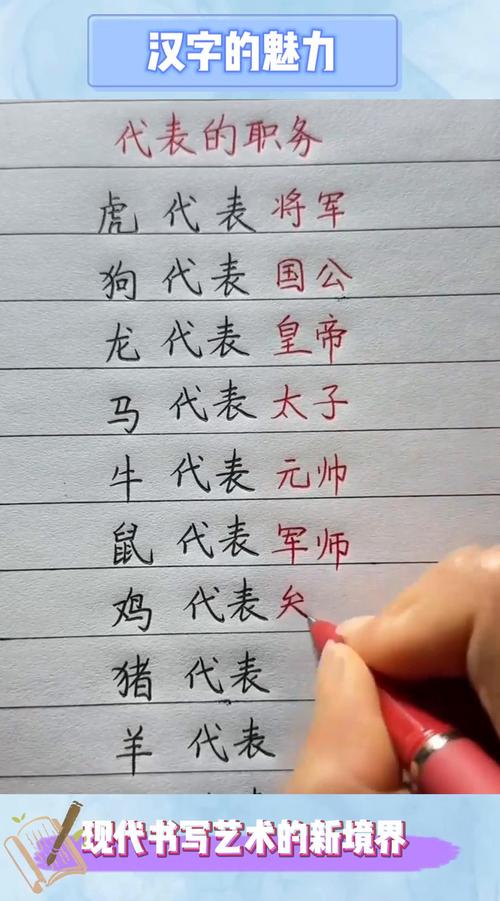 汉字的魅力
代表的职务
虎 代表 将军
狗 代表 国公
龙 代表 皇帝
马 代表 太子
牛 代表 元帅
鼠 代表 军师
鸡 代表
猪 代表
羊 代表
现代书写艺术的新境界